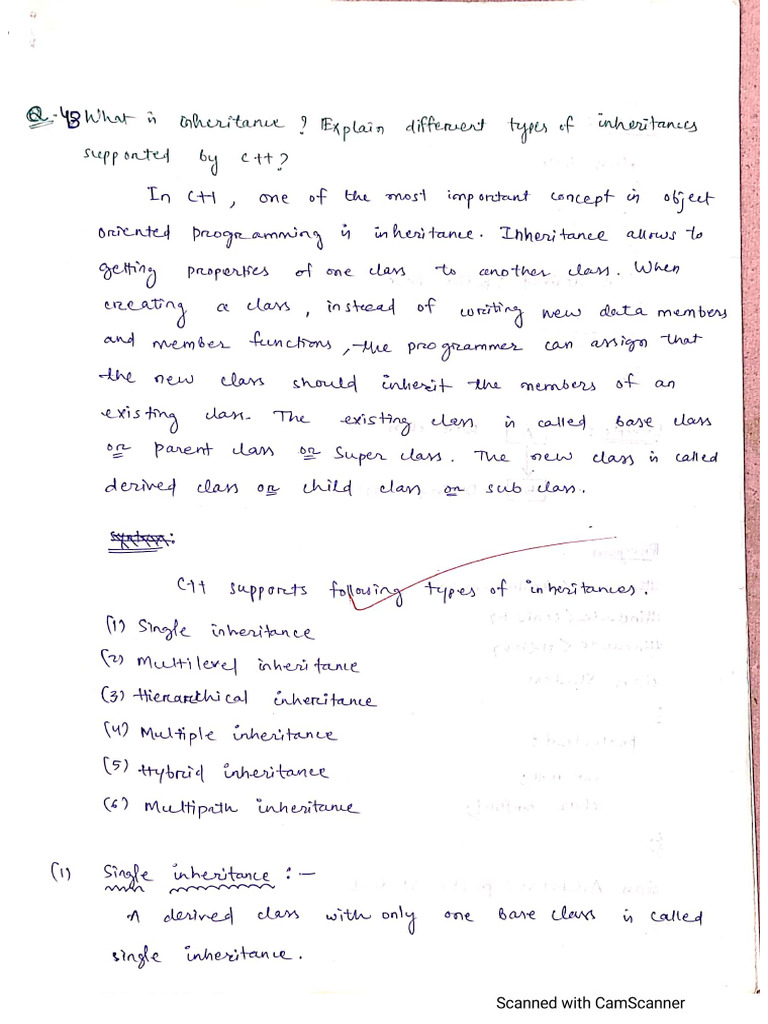 Q.-48 What is inheritance? Explain different types of inheritances
supported by C++?
In C++, one of the most important concept in object
oriented programming is inheritance. Inheritance allows to
getting properties of one class to another class. When
creating a class, instead of writing new data members
and member functions, the programmer can assign that
the new class should inherit the members of an
existing class. The existing class is called Base class
or parent class or Super class. The new class is called
derived class or child class or sub class.
C++ supports following types of inheritances.
(1) Single inheritance
(2) Multilevel inheritance
(3) Hierarchical inheritance
(4) Multiple inheritance
(5) Hybrid inheritance
(6) Multipath inheritance
(1) Single inheritance :-
A derived class with only one Base class is called
single inheritance.
Scanned with CamScanner